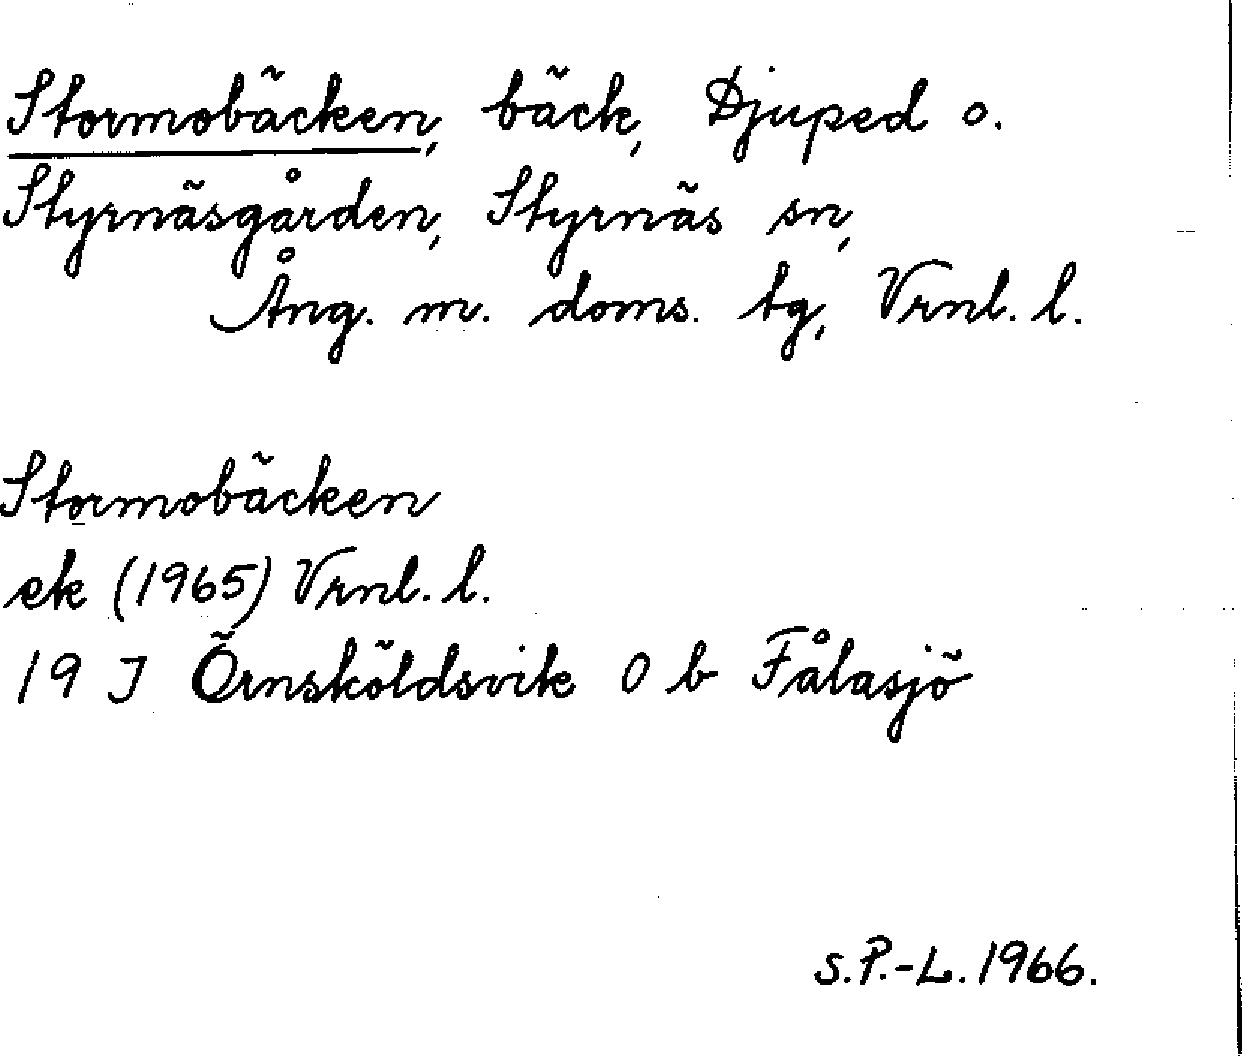 Stormobäcken, bäck, Djuped o.
Styrnäsgården, Styrnäs sn,
Ång. m. doms. tg, Vrnl. l.
Stormobäcken
ek (1965) Vrnl. l.
19 J Örnsköldsvik 0 b Fålasjö
S.P.-L. 1966.